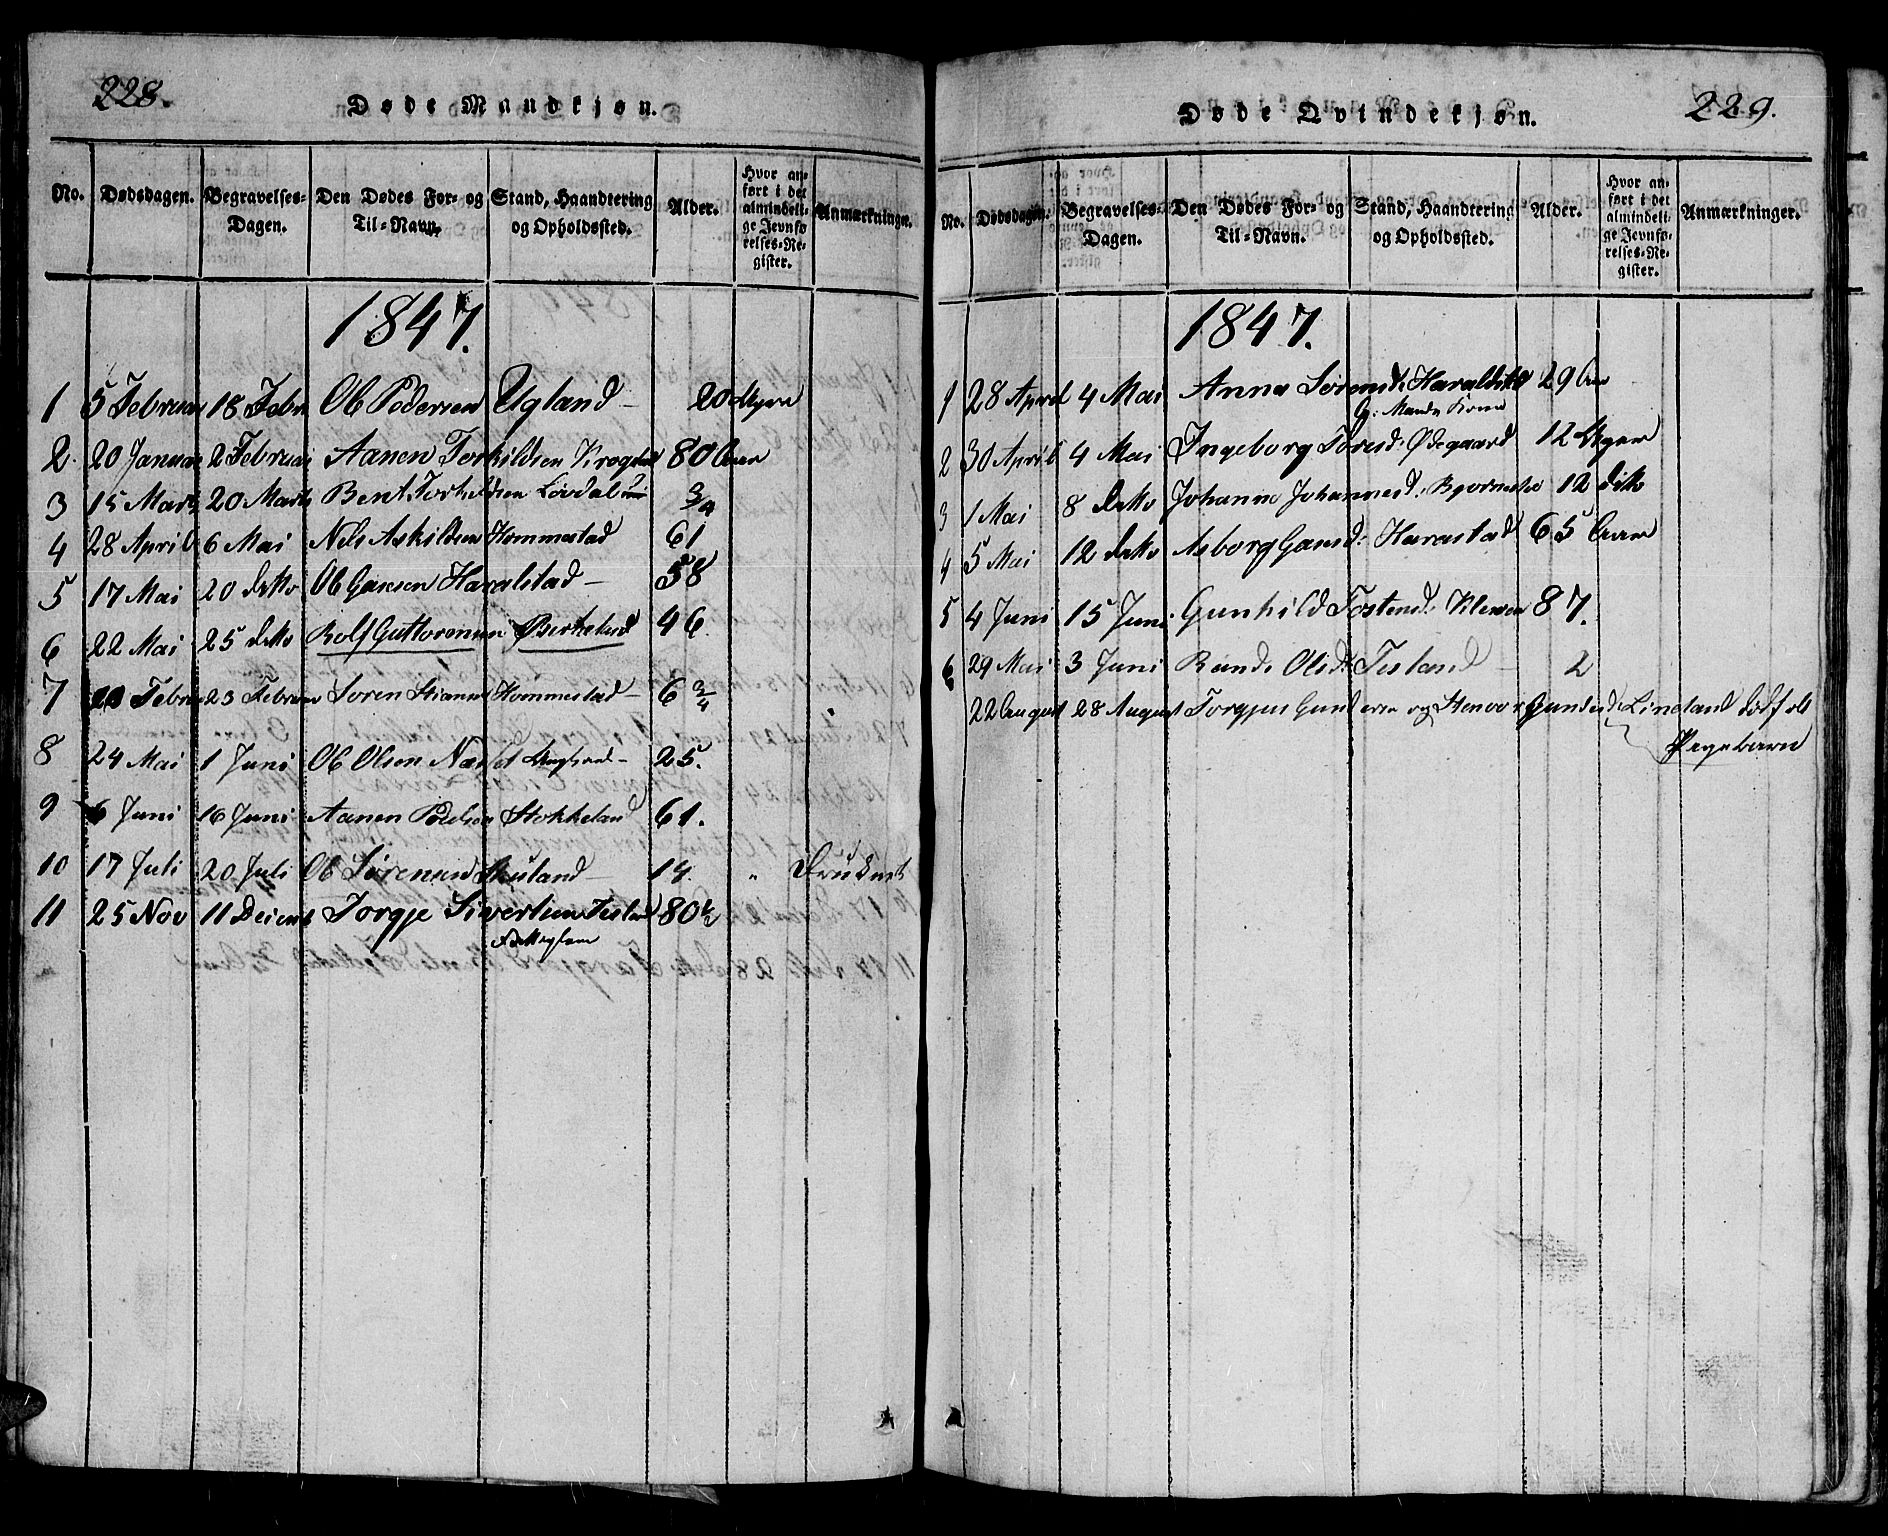 228.
Døde Mandkjøn.
No. Dødsdagen. Begravelses-Dagen. Den Dødes For- og Til-Navn. Stand, Haandtering og Opholdssted. Alder. Hvor anført i det almindelige Jevnførelses-Register. Anmærkninger.
1847.
1 5 Februar 18 Febr Ole Pedersen Ugland – 20 Uger
2. 20 Januar 2 Februar Aanen Torkildsen 80 Aar
3 15 Marts 20 Marts Bent Torkildsen Løvdal 3/4
4 28 April 6 Mai Nils Askildsen Hommestad 61
5 17 Mai 20 detto Ole Gaksen Haralstad – 58
6 22 Mai 25 detto Rolf Guttormsen Birkeland 46.
7 Febru 23 Februar Soren Stiansen Hommestad – 6 3/4
8 24 Mai 1 Juni Ole Olsen – 25.
9 6 Juni 16 Juni Aanen Stokkeland 61.
10 17 Juli 20 Juli Ole Sørensen – 14. " Druknet
11 25 Nov 11 Decemb Torgje Sivertsen Tisland 80 1/2
229.
Døde Qvindekjøn.
No. Dødsdagen. Begravelses-Dagen. Den Dødes For- og Til-Navn. Stand, Haandtering og Opholdssted. Alder. Hvor anført i det almindelige Jevnførelses-Register. Anmærkninger.
1847.
1 28 April 4 Mai Anna Sørensd: Haralstad 29 Aar
G: Mands Kone
2 30 April 4 Mai Ingeborg Toresd: Ødegaard 12 Uger
3 1 Mai 8 detto Johanne Johannesd: 12 dito
4 5 Mai 12 detto Asborg Gansd: Harastad 65 Aar
5 4 Juni 15 Juni Gunhild Tostensd: Kleven 87.
6 29 Mai 3 Juni Olsd: Tisland – 2
22 August 28 August Torgjus Gundersen og Stenvor Gundersd: Lineland dødfødt
Pigebarn